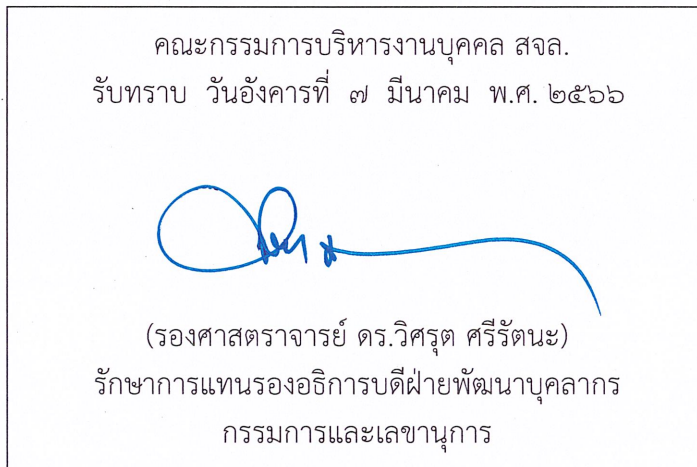 คณะกรรมการบริหารงานบุคคล สจล.
รับทราบ วันอังคารที่ ๗ มีนาคม พ.ศ. ๒๕๖๖
(รองศาสตราจารย์ ดร.วิศรุต ศรีรัตนะ)
รักษาการแทนรองอธิการบดีฝ่ายพัฒนาบุคลากร
กรรมการและเลขานุการ